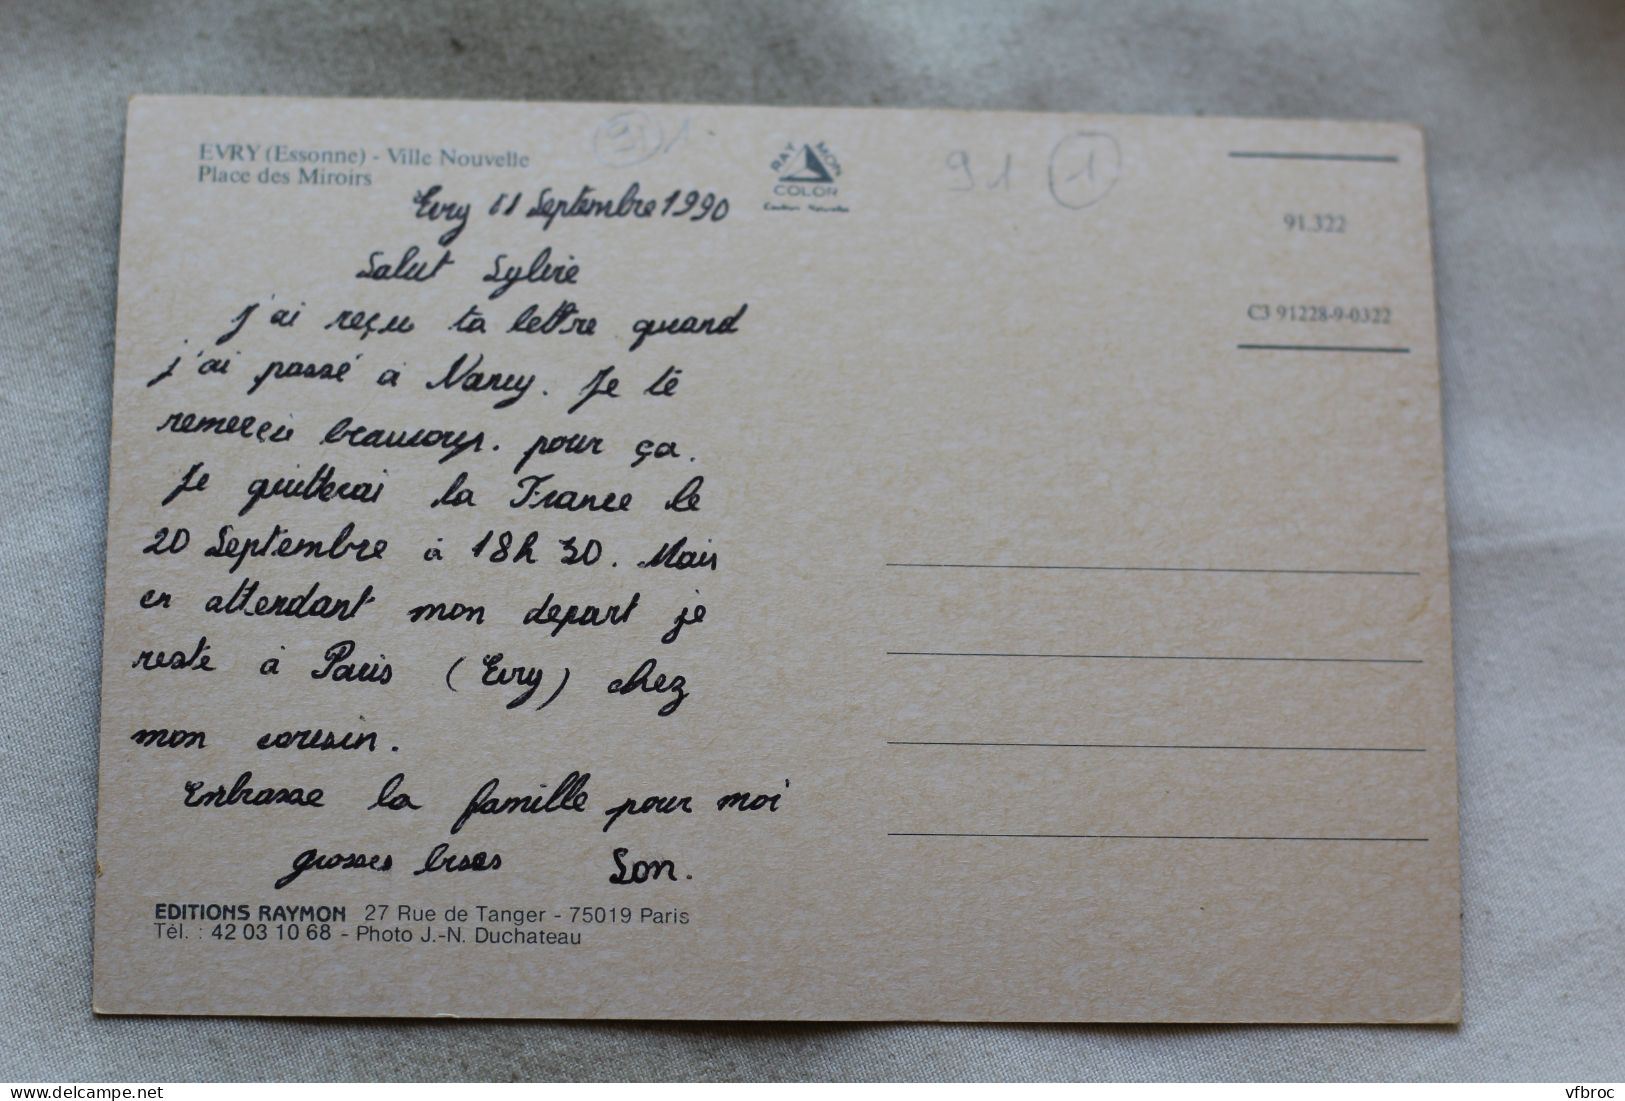 EVRY (Essonne) - Ville Nouvelle
Place des Miroirs
91 1
RAY MON
COLOR
91 1
91.322
C3 91228-9-0322
Evry 11 Septembre 1990
Salut Sylvie
J'ai reçu ta lettre quand
j'ai passé à Nancy. Je te
remercie beaucoup. pour ça.
Je quitterai la France le
20 Septembre à 18h 30. Mais
en attendant mon depart je
reste à Paris (Evry) chez
mon cousin.
Embrasse la famille pour moi
grosses bises Son.
EDITIONS RAYMON 27 Rue de Tanger - 75019 Paris
Tél. : 42 03 10 68 - Photo J.-N. Duchateau
delcampe.net
vfbroc